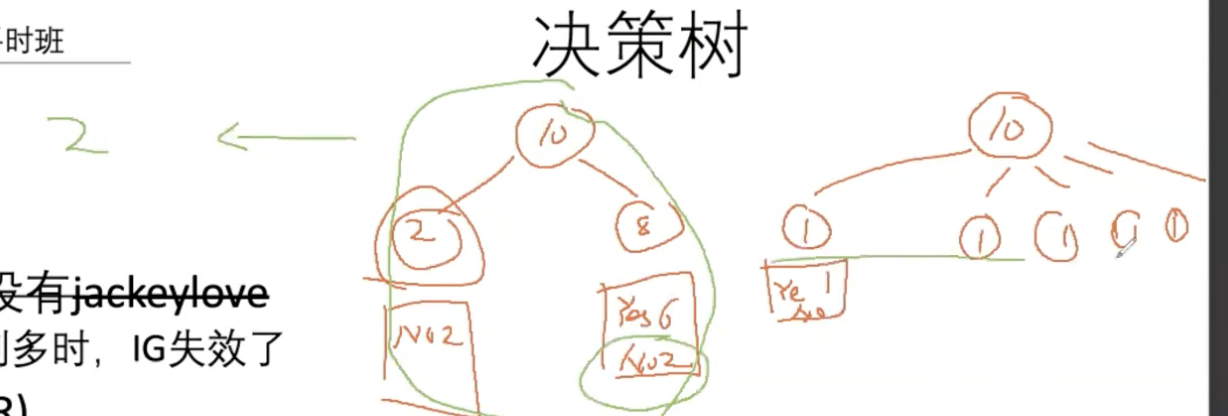 时班
决策树
2
10
2
8
No2
Yes6
No2
10
1
1
1
1
Ye 1
No
没有jackeylove
多时，IG失效了
R)